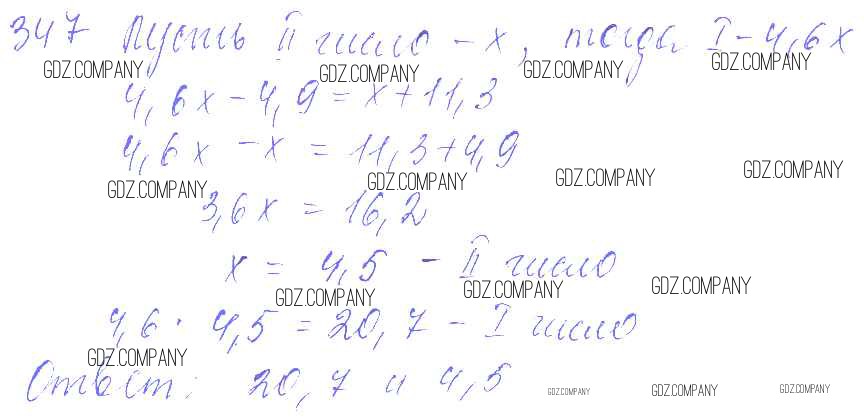 347 Пусть II число - x, тогда I - 4,6x
GDZ.COMPANY GDZ.COMPANY GDZ.COMPANY GDZ.COMPANY
4,6x - 4,9 = x + 11,3
4,6x - x = 11,3 + 4,9
GDZ.COMPANY GDZ.COMPANY GDZ.COMPANY GDZ.COMPANY
3,6x = 16,2
x = 4,5 - II число
GDZ.COMPANY GDZ.COMPANY GDZ.COMPANY
4,6 · 4,5 = 20,7 - I число
GDZ.COMPANY
Ответ: 20,7 и 4,5
GDZ.COMPANY GDZ.COMPANY GDZ.COMPANY